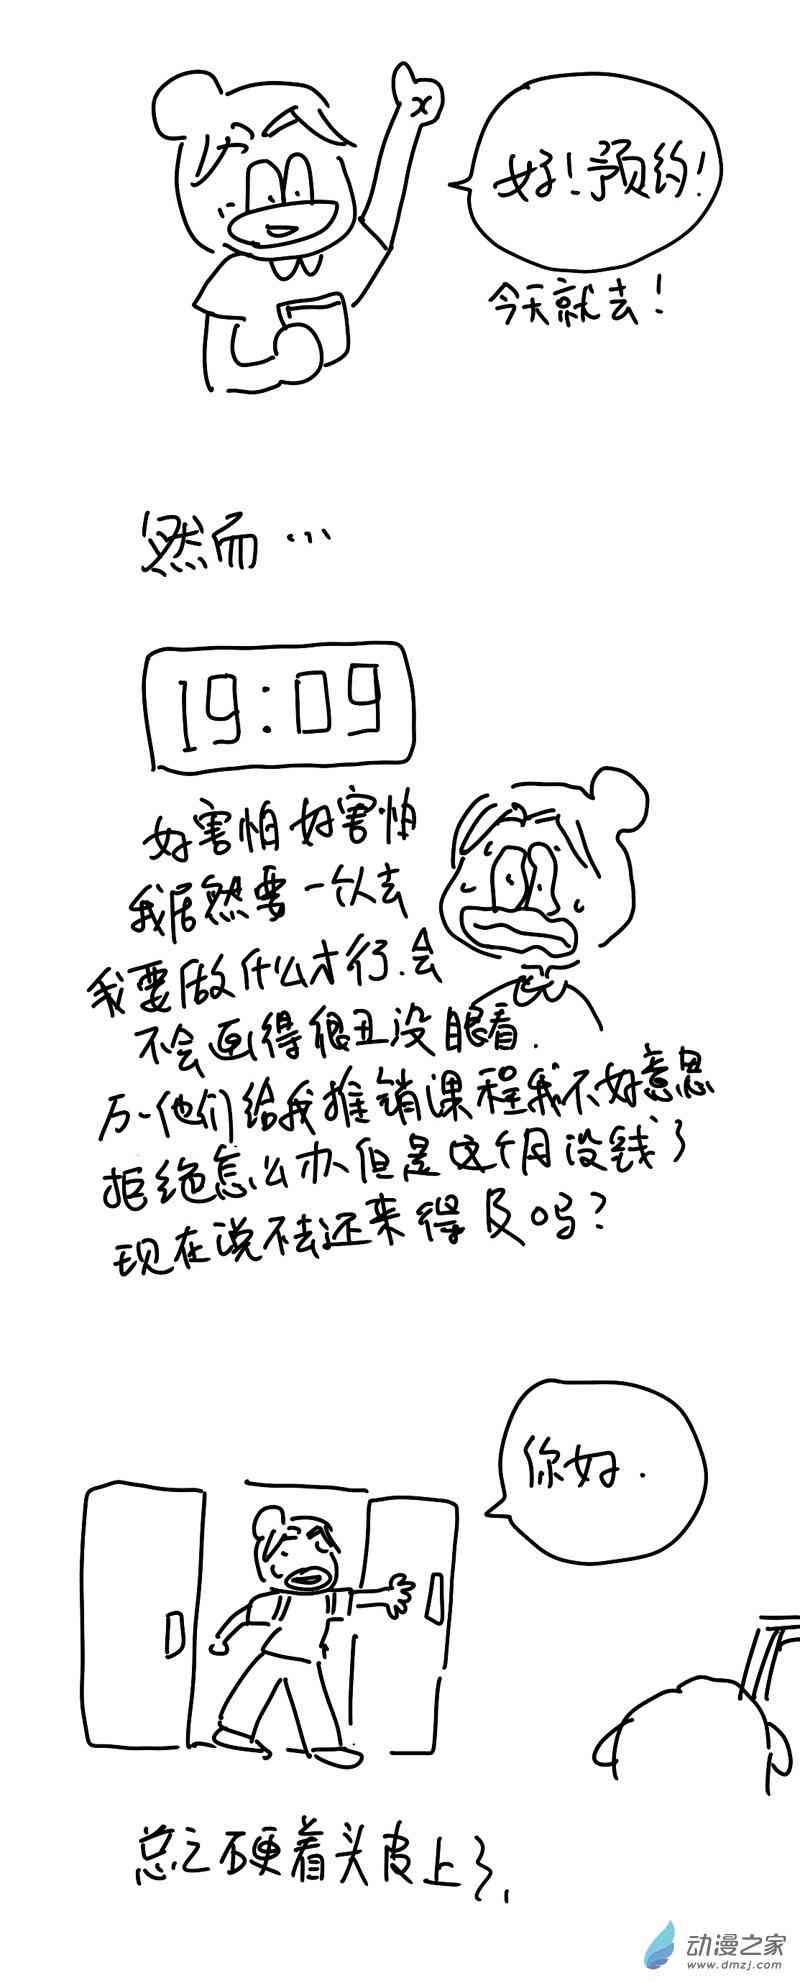 好！预约！
今天就去！
然而…
19:09
好害怕好害怕
我居然要一个人去
我要做什么才行.会
不会画得很丑没眼看.
万一他们给我推销课程我不好意思
拒绝怎么办但是这个月没钱了
现在说不去还来得及吗？
你好.
总之硬着头皮上了.
动漫之家
www.dmzj.com